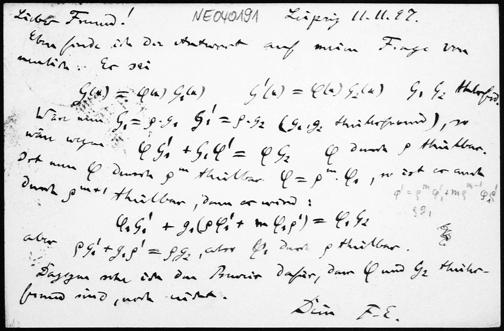 Liebster Freund! NE040191 Leipzig 11.11.27.
Eben finde ich die Antwort auf meine Frage von
neulich: Es sei
G(x) = φ(x) G₁(x) G'(x) = φ(x) G₂(x) G₁ G₂ teilerfrd.
Wäre nun G₁ = ρ·g₁ G₁' = ρ·g₂ (g₁, g₂ teilerfremd), so
wäre wegen φ G₁' + G₁φ' = φ G₂ φ durch ρ teilbar.
Ist nun φ durch ρᵐ teilbar φ = ρᵐ·φ₁, so ist es auch
durch ρᵐ⁺¹ teilbar, denn es wird:
φ' = ρᵐφ₁' + mρᵐ⁻¹φ₁ρ'
φ₁G₁' + g₁(ρφ₁' + mφ₁ρ') = φ₁G₂
aber ρg₁' + g₁ρ' = ρg₂, also durch ρ teilbar.
Dagegen sehe ich den Beweis dafür, dass φ und G₂ teiler-
fremd sind, noch nicht.
Dein F.E.